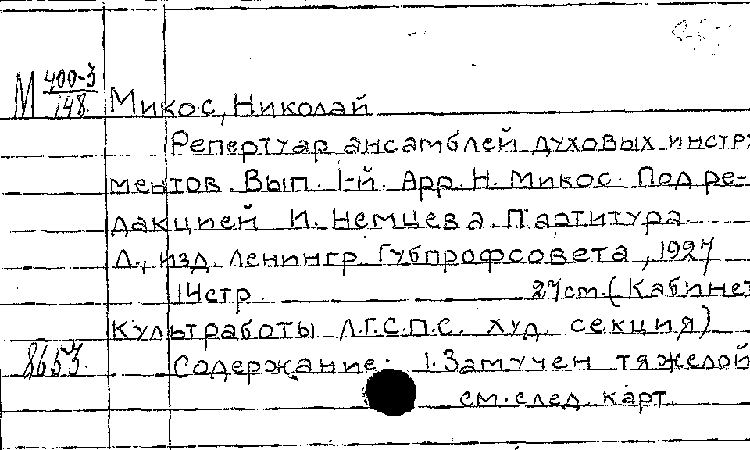 М 400-3/148. Микос, Николай
Репертуар ансамблей духовых инстру
ментов. Вып. 1-й. Арр. Н. Микос. Под ре-
дакцией И. Немцева. Партитура.
Л., изд. Ленингр. Губпрофсовета, 1927
14стр. 27cm. (Кабинет
культработы Л.Г.С.П.С. худ. секция)
8653. Содержание: 1. Замучен тяжелой
см. след. карт.